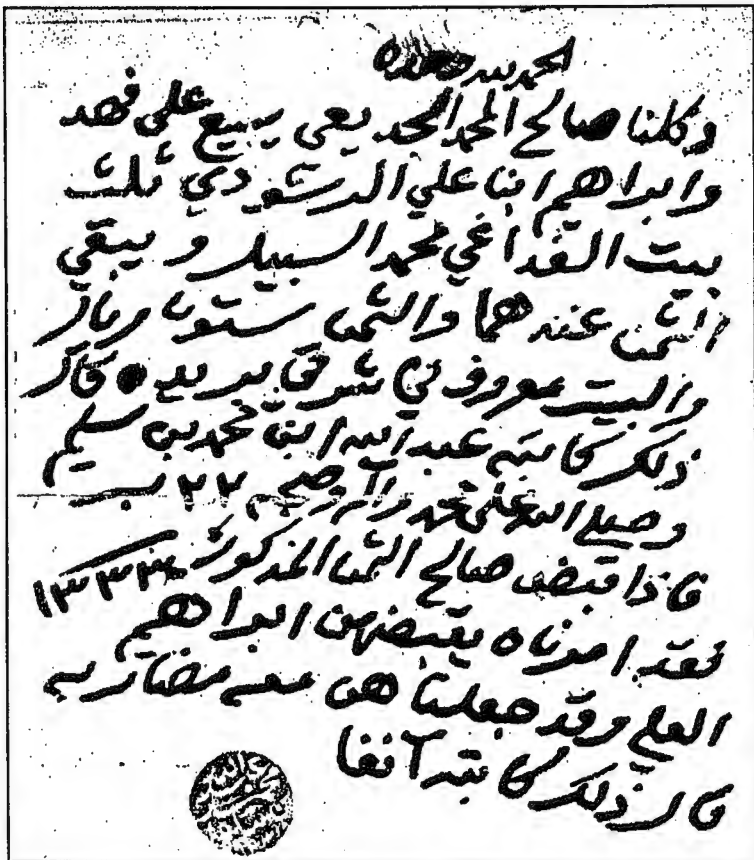 الحمد لله وحده
وكلنا صالح المحمد الجديعي يبيع على فهد
وابراهيم ابنا علي الرشودي ثلث
بيت القداغي محمد السبيل ويبقي
الثمن عندهما والثمن ستون ريال
والبيت معروف في شرقي بريده قال
ذلك كاتبه عبد الله ابن محمد بن سليم
وصلى الله على محمد وآله وصحبه ٢٢
فاذا قبض صالح الثمن المذكور ١٣٣٤
فقد امرناه يقبضه من ابراهيم
العلي وقد جعلنا هن معه مضاربه
قال ذلك كاتبه آنفا